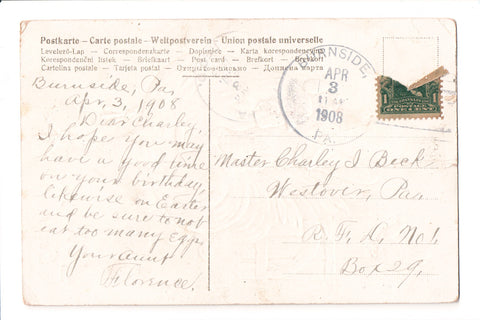 Postkarte - Carte postale - Weltpostverein - Union postale universelle
Levelező-Lap - Correspondenzkarte - Dopisnice - Karta korespondencyjna
Korespondenční lístek - Briefkaart - Post card - Brefkort - Brevkort
Cartolina postale - Tarjeta postal - Открытое письмо - Дописна карта
BURNSIDE,
APR
3
1908
PA.
1
Burnside, Pa
Apr, 3, 1908
Dear Charley,
I hope you may
have a good time
on your birthday
likewise on Easter
and be sure to not
eat too many Eggs
Your Aunt
Florence.
Master Charley I Beck
Westover, Pa
R. F. D. No 1,
Box 29,